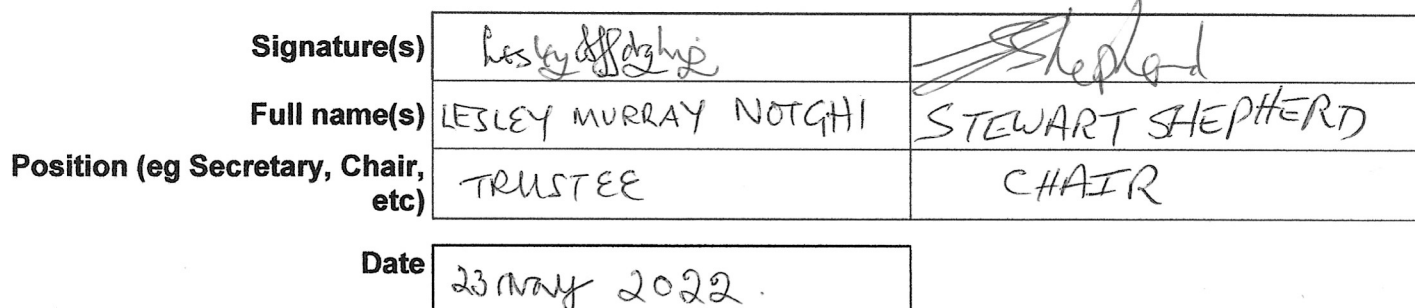 Signature(s) Lesley Shepherd
Full name(s) LESLEY MURRAY NOTGHI STEWART SHEPHERD
Position (eg Secretary, Chair, TRUSTEE CHAIR
etc)
Date 23 May 2022.